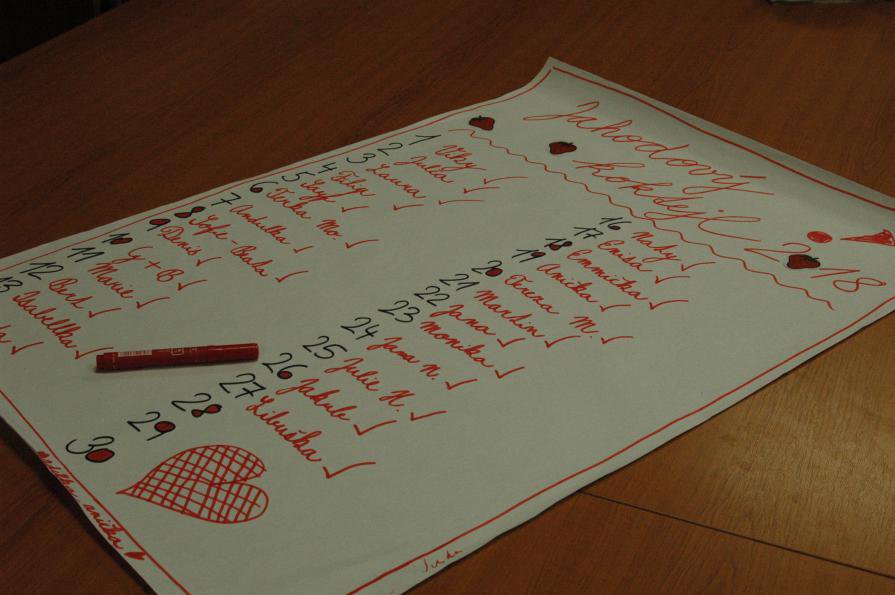 Jahodový
koktejl 2018
1 Viky
2 Julia
3 Laura
4 Filip
5
6 Terka Mo.
7 Andulka
8 Sofi - Barla
9 Denis
10 G + B
11 Marie
12 Bert
13 Isabellka
16 Naďy
17 Enisa
18 Emmička
19 Anička
20 Tereza M.
21 Martin
22 Jana
23 Monika
24 Jana N.
25 Julie H.
26 Jakub
27 Libuška
28
29
30
anička